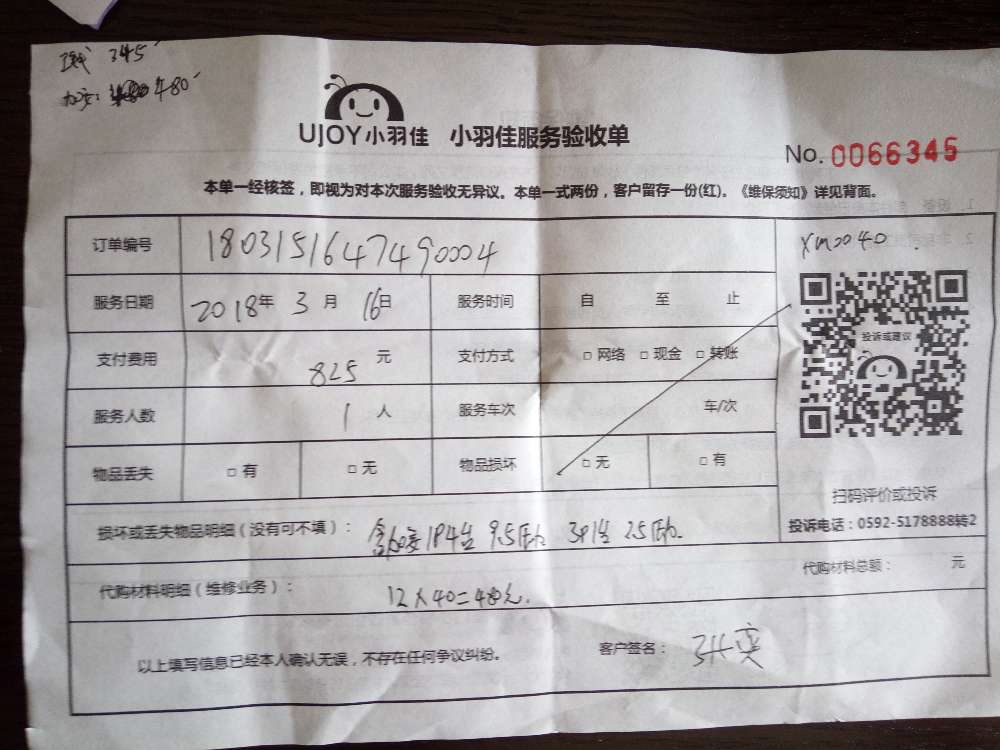 345
480
UJOY小羽佳 小羽佳服务验收单
No. 0066345
本单一经核签，即视为对本次服务验收无异议。本单一式两份，客户留存一份(红)。《维保须知》详见背面。
订单编号 1803151647490004
xm0040
服务日期 2018年 3月 16日 服务时间 自 至 止
投诉或建议
支付费用 825 元 支付方式 □ 网络 □ 现金 □ 转账
服务人数 1 人 服务车次 车/次
物品丢失 □ 有 □ 无 物品损坏 □ 无 □ 有
扫码评价或投诉
投诉电话：0592-5178888转2
损坏或丢失物品明细（没有可不填）： 1P4台 9.5 3P1台 2.5
代购材料明细（维修业务）： 12×40=480元. 代购材料总额： 元
以上填写信息已经本人确认无误，不存在任何争议纠纷。 客户签名：